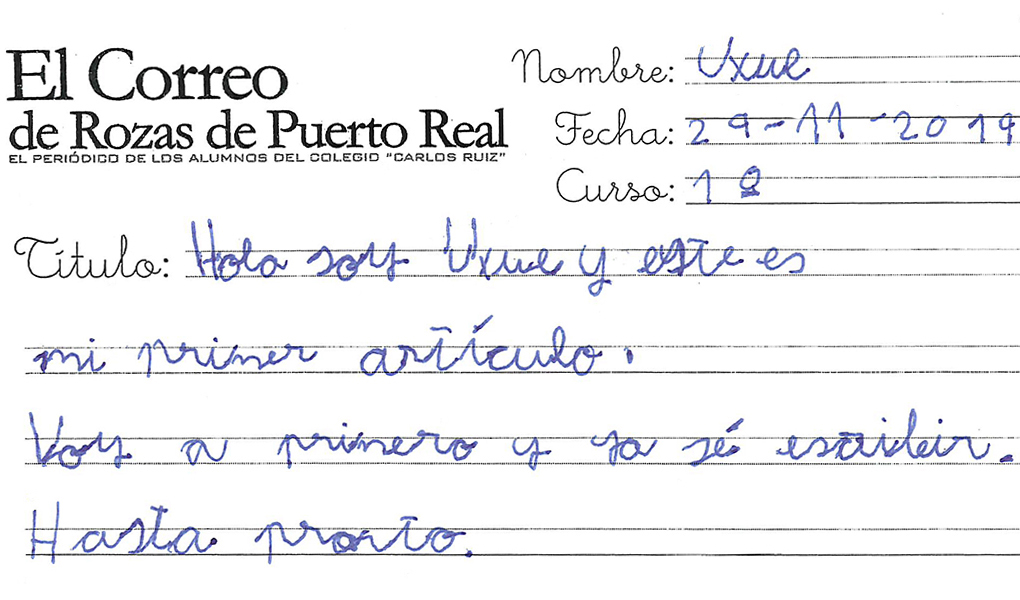 El Correo
de Rozas de Puerto Real
EL PERIÓDICO DE LOS ALUMNOS DEL COLEGIO "CARLOS RUIZ"
Nombre: Uxue
Fecha: 29-11-2019
Curso: 1º
Título: Hola soy Uxue y este es
mi primer artículo.
Voy a primero y ya sé escribir.
Hasta pronto.